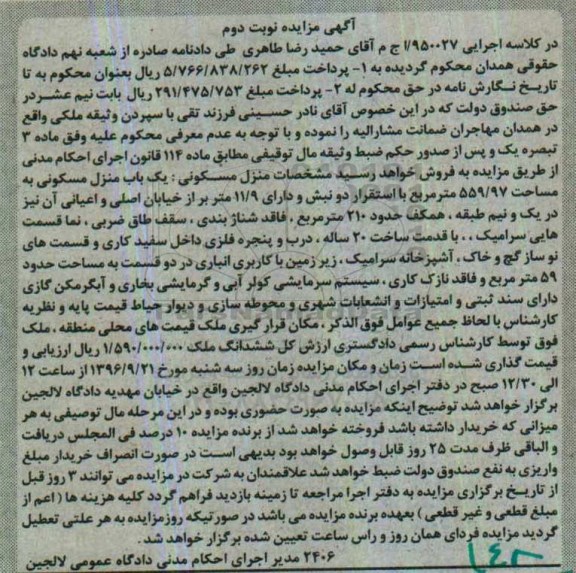 آگهی مزایده نوبت دوم
در کلاسه اجرایی ۹۵۰۰۲۷/ا ج م آقای حمید رضا طاهری طی دادنامه صادره از شعبه نهم دادگاه
حقوقی همدان محکوم گردیده به ۱- پرداخت مبلغ ۵/۷۶۶/۸۳۸/۲۶۲ ریال بعنوان محکوم به تا
تاریخ نگارش نامه در حق محکوم له ۲- پرداخت مبلغ ۲۹۱/۴۷۵/۷۵۳ ریال بابت نیم عشر در
حق صندوق دولت که در این خصوص آقای نادر حسینی فرزند تقی با سپردن وثیقه ملکی واقع
در همدان مهاجران ضمانت مشارالیه را نموده و با توجه به عدم معرفی محکوم علیه وفق ماده ۳
تبصره یک و پس از صدور حکم ضبط وثیقه مال توقیفی مطابق ماده ۱۱۴ قانون اجرای احکام مدنی
از طریق مزایده به فروش خواهد رسید مشخصات منزل مسکونی : یک باب منزل مسکونی به
مساحت ۵۵۹/۹۷ مترمربع با استقرار دو نبش و دارای ۱۱/۹ متر بر از خیابان اصلی و اعیانی آن نیز
در یک و نیم طبقه ، همکف حدود ۲۱۰ مترمربع ، فاقد شناژ بندی ، سقف طاق ضربی ، نما قسمت
هایی سرامیک ، ، با قدمت ساخت ۲۰ ساله ، درب و پنجره فلزی داخل سفید کاری و قسمت های
نو ساز گچ و خاک ، آشپزخانه سرامیک ، زیر زمین با کاربری انباری در دو قسمت به مساحت حدود
۵۹ متر مربع و فاقد نازک کاری ، سیستم سرمایشی کولر آبی و گرمایشی بخاری و آبگرمکن گازی
دارای سند ثبتی و امتیازات و انشعابات شهری و محوطه سازی و دیوار حیاط قیمت پایه و نظریه
کارشناس با لحاظ جمیع عوامل فوق الذکر ، مکان قرار گیری ملک قیمت های محلی منطقه ، ملک
فوق توسط کارشناس رسمی دادگستری ارزش کل ششدانگ ملک ۱/۵۹۰/۰۰۰/۰۰۰ ریال ارزیابی و
قیمت گذاری شده است زمان و مکان مزایده زمان روز سه شنبه مورخ ۱۳۹۶/۹/۲۱ از ساعت ۱۲
الی ۱۲/۳۰ صبح در دفتر اجرای احکام مدنی دادگاه لالجین واقع در خیابان مهدیه دادگاه لالجین
برگزار خواهد شد توضیح اینکه مزایده به صورت حضوری بوده و در این مرحله مال توصیفی به هر
میزانی که خریدار داشته باشد فروخته خواهد شد از برنده مزایده ۱۰ درصد فی المجلس دریافت
و الباقی ظرف مدت ۲۵ روز قابل وصول خواهد بود بدیهی است در صورت انصراف خریدار مبلغ
واریزی به نفع صندوق دولت ضبط خواهد شد علاقمندان به شرکت در مزایده می توانند ۳ روز قبل
از تاریخ برگزاری مزایده به دفتر اجرا مراجعه تا زمینه بازدید فراهم گردد کلیه هزینه ها ( اعم از
مبلغ قطعی و غیر قطعی ) بعهده برنده مزایده می باشد در صورتیکه روز مزایده به هر علتی تعطیل
گردید مزایده فردای همان روز و راس ساعت تعیین شده برگزار خواهد شد .
۲۴۰۶ مدیر اجرای احکام مدنی دادگاه عمومی لالجین